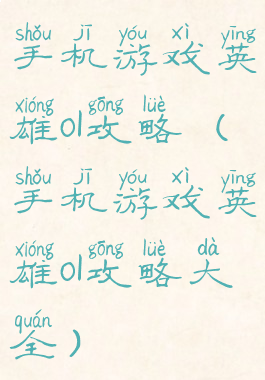 shǒu jī yóu xì yīng
手机游戏英
xióng gōng lüè
雄01攻略（
shǒu jī yóu xì yīng
手机游戏英
xióng gōng lüè dà
雄01攻略大
quán
全）